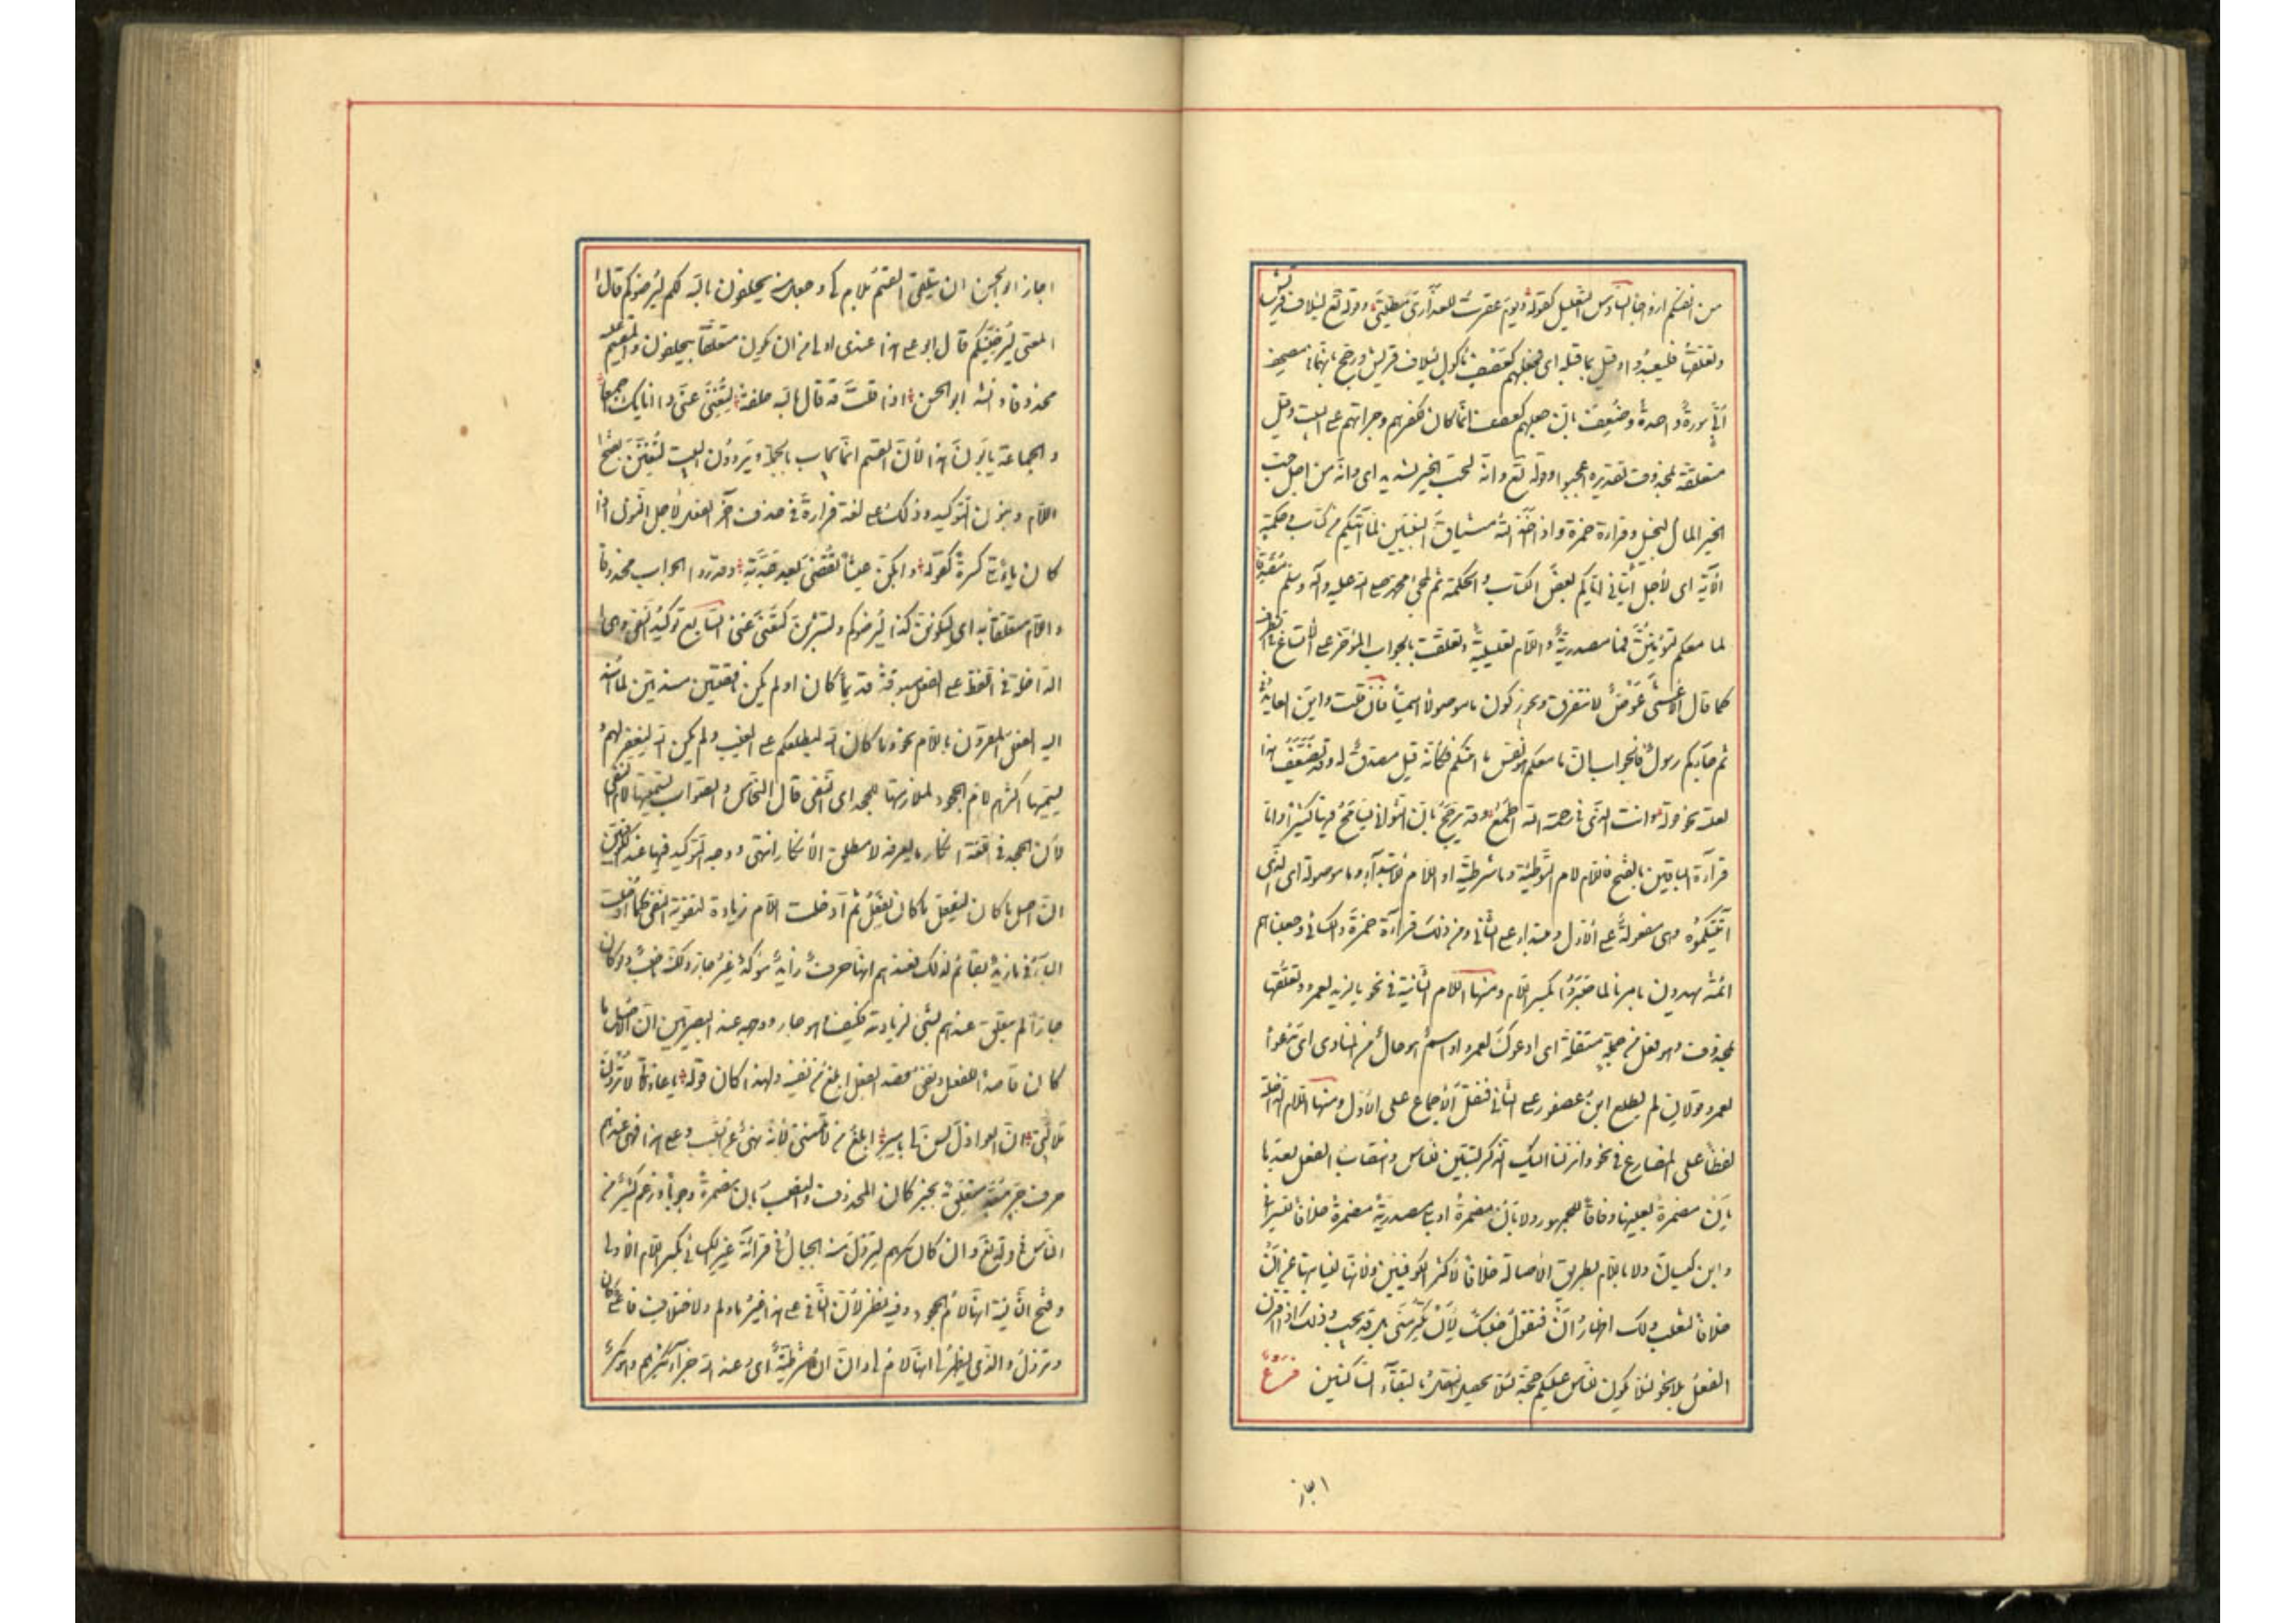 من انفسكم ازواجا السادس التعليل كقوله ويوم عقرت للعذارى مطيتى وقوله تع لايلاف قريش
وتعلقها فليعبدوا وقيل بما قبله اى فجعلهم كعصف مأكول لايلاف قريش ورجح بانهما فى مصحف
ابىّ سورة واحدة وضعف بان جعلهم كعصف انما كان لكفرهم وجرأتهم على البيت وقيل
متعلقة بمحذوف تقديره اعجبوا وقوله تع وانه لحب الخير لشديد اى وانه من اجل حب
الخير المال لبخيل وقراءة حمزة واذ اخذ الله ميثاق النبيين لما آتيتكم من كتاب وحكمة
الآية اى لاجل ايتائى اياكم بعض الكتاب والحكمة ثم لمجئ محمد صلى الله عليه وآله وسلم مصدقا
لما معكم لتؤمنن فما مصدرية واللام تعليلية وتعلقت بالجواب المؤخر على الاتساع فى الظرف
كما قال الاعشى عوض لا نتفرق ويجوز كون ما موصولا اسميا فان قلت واين العايد فى
ثم جاءكم رسول فالجواب ان ما معكم هو نفس ما آتيتكم فكأنه قيل مصدق له وقد يضعف هذا
لقلته نحو قوله وانت الذى فى رحمة الله اطمع وقد يرجح بان الثوانى يتسامح فيها كثيرا واما
قراءة الباقين بالفتح فاللام لام التوطئة وما شرطية او اللام للابتداء وما موصولة اى الذى
آتيتكموه وهى مفعولة على الاول ومبتدأ على الثانى ومن ذلك قراءة حمزة والكسائى وجعلناهم
ائمة يهدون بامرنا لما صبروا بكسر اللام ومنها اللام الثانية فى نحو يا لزيد لعمرو وتعلقها
بمحذوف وهو فعل من جملة مستقلة اى ادعوك لعمرو او اسم هو حال من المنادى اى مدعوا
لعمرو قولان لم يطلع ابن عصفور على الثانى فنقل الاجماع على الاول ومنها اللام الداخلة
لفظا على المضارع فى نحو وانزلنا اليك الذكر لتبين للناس وانتصاب الفعل بعدها
بان مضمرة بعينها وفاقا للجمهور ولا بان مضمرة او بكى مصدرية مضمرة خلافا للسيرافى
وابن كيسان ولا باللام بطريق الاصالة خلافا لاكثر الكوفيين ولا بها لنيابتها عن ان
خلافا لثعلب ولك اظهار ان فتقول جئتك لان تكرمنى بل قد يجب وذلك اذا اقترن
الفعل بلا نحو لئلا يكون للناس عليكم حجة لئلا يحصل الثقل بالتقاء الساكنين فرع
اجاز
اجاز ابو الحسن ان يتلقى القسم بلام كى وجعل منه يحلفون بالله لكم ليرضوكم قال
المعنى ليرضنكم قال ابو على هذا عندى اولى من ان يكون متعلقا بيحلفون والمقسم عليه
محذوفا وانشد ابو الحسن اذا قلت قد قال بالله حلفة لتغنى عنى ذا انائك اجمعا
والجماعة يأبون هذا لأن القسم انما يجاب بالجملة ويروون البيت لتغنن بفتح
اللام وبنون التوكيد وذلك على لغة فزارة فى حذف آخر الفعل لاجل النون اذا
كان ياء تلى كسرة كقوله وابكن عيشا تقضى بعد جدته وقدروا الجواب محذوفا
واللام متعلقا به اى ليكونن كذا ليرضوكم ولتشربن لتغنى عنى السابع توكيد النفى وهى
الداخلة فى اللفظ على الفعل مسبوقة بما كان او لم يكن ناقصتين مسندتين لما اسند
اليه الفعل المقرون باللام نحو وما كان الله ليطلعكم على الغيب ولم يكن الله ليغفر لهم و
يسميها اكثرهم لام الجحود لملازمتها للجحد اى النفى قال النحاس والصواب تسميتها لام النفى
لأن الجحد فى اللغة انكار ما يعرفه لا مطلق الانكار انتهى ووجه التوكيد فيها عند الكوفيين
ان اصل ما كان ليفعل ما كان يفعل ثم ادخلت اللام زيادة لتقوية النفى كما ادخلت
الباء فى ما زيد بقائم لذلك فعندهم انها حرف زائد مؤكد غير جار ولكنه ناصب ولو كان
جارا لم يتعلق عندهم بشئ لزيادته فكيف وهو غير جار ووجهه عند البصريين ان الاصل ما
كان قاصدا للفعل ونفى قصد الفعل ابلغ من نفيه ولهذا كان قوله يا عاذلاتى لا تردن
ملامتى ان العواذل ليس لى بامير ابلغ من لا تلمننى لأنه نهى عن السبب وعلى هذا فهى عندهم
حرف جر معد متعلق بخبر كان المحذوف والنصب بان مضمرة وجوبا وزعم كثير من
الناس فى قوله تع وان كان مكرهم لتزول منه الجبال فى قراءة غير الكسائى بكسر اللام الاولى
وفتح الثانية انها لام الجحود وفيه نظر لأن النافى على هذا غير ما ولم ولاختلاف فاعلى كان
وتزول والذى يظهر لى انها لام كى وان ان شرطية اى وعند الله جزاء مكرهم وهو مكر